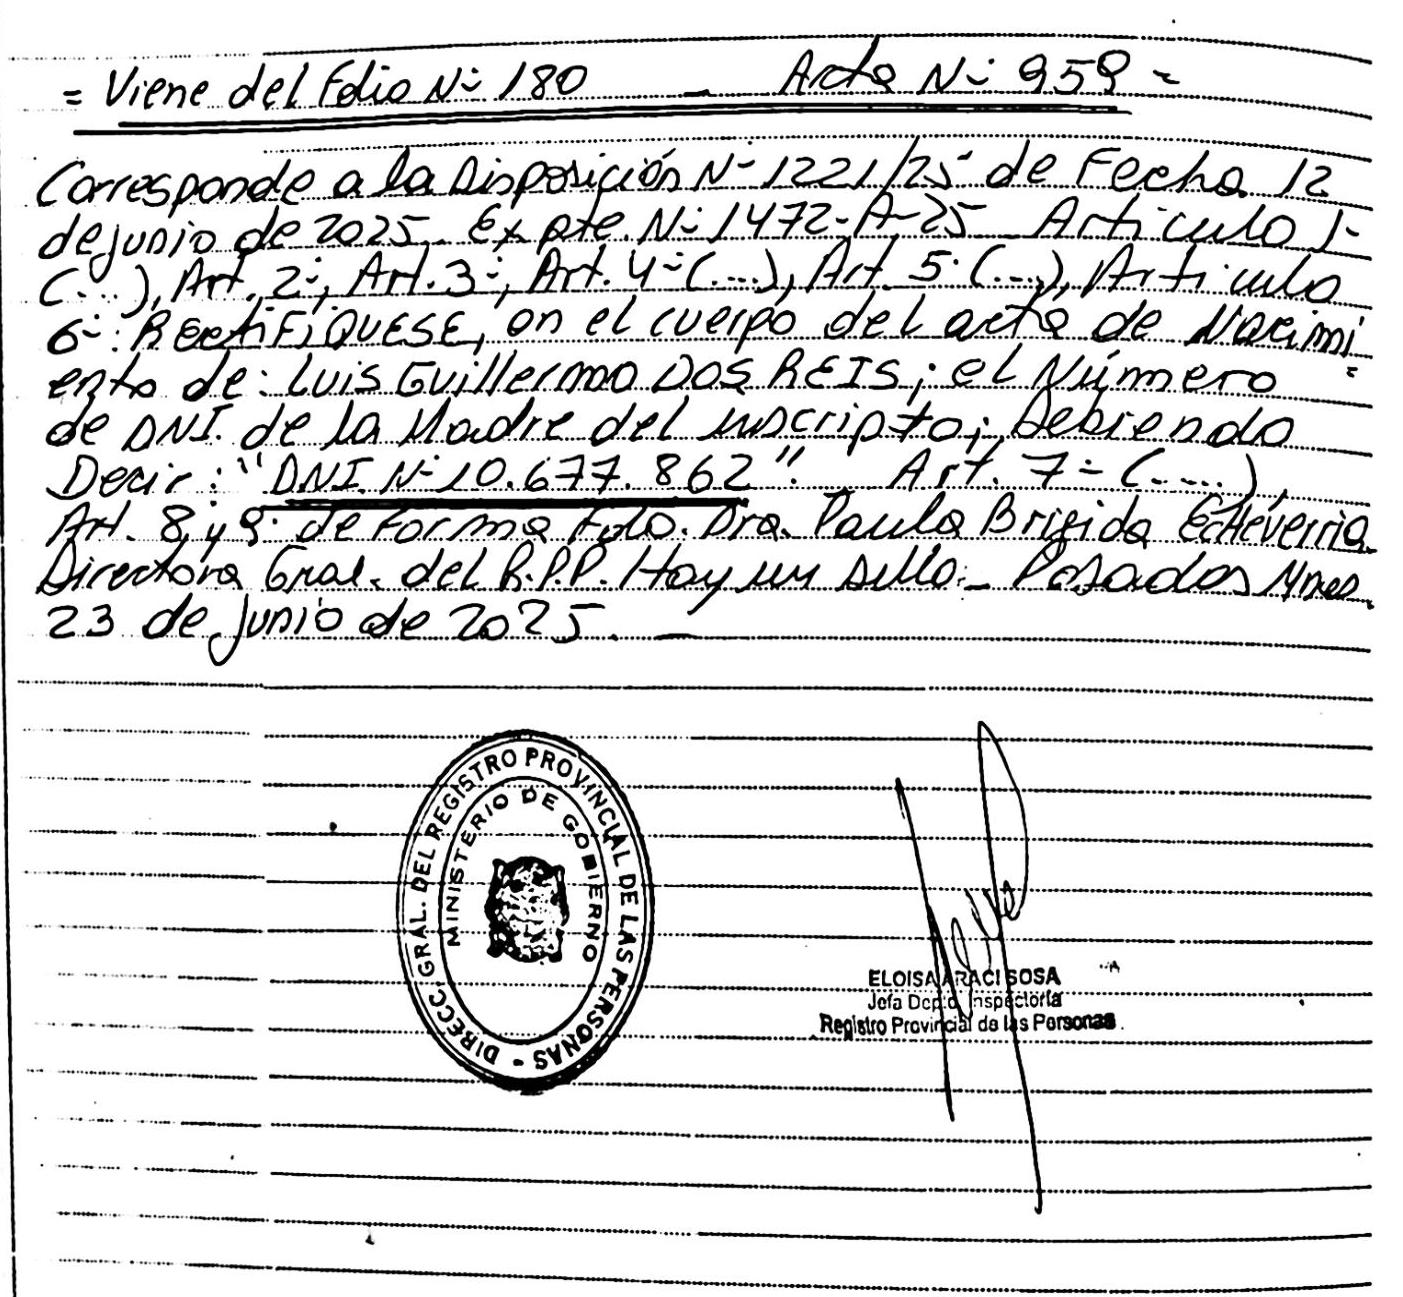 = Viene del Folio Nº 180 - Acta Nº 959 =
Corresponde a la Disposición Nº 1221/25 de Fecha 12
de junio de 2025. Expte. Nº 1472-A-25 Articulo 1º
(...), Art. 2º, Art. 3º, Art. 4º (...), Art. 5º (...), Articulo
6º: RECTIFIQUESE, en el cuerpo del acta de Nacimi
ento de: Luis Guillermo DOS REIS; el Número
de DNI. de la Madre del inscripto; Debiendo
Decir: "DNI Nº 10.677.862" Art. 7º (....),
Art. 8 y 9 de Forma Fdo. Dra. Paula Brigida Echeverria
Directora Gral. del R.P.P. Hay un sello._ Posadas Mnes.
23 de junio de 2025. —
DIRECC. GRAL. DEL REGISTRO PROVINCIAL DE LAS PERSONAS -
MINISTERIO DE GOBIERNO
ELOISA ARACI SOSA
Jefa Dpto. Inspectoría
Registro Provincial de las Personas